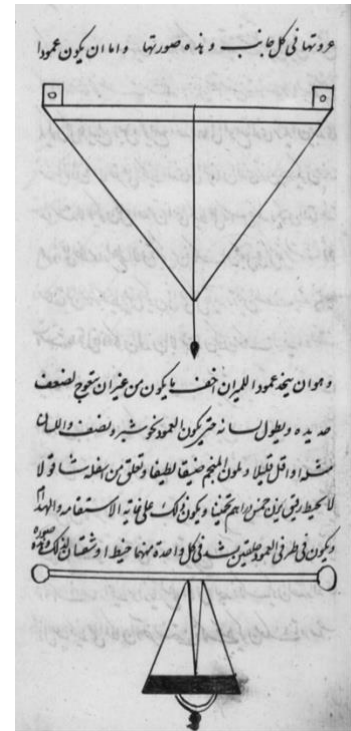 عروتها فى كل جانب وهذه صورتها واما ان يكون عمودا
وهو ان يتخذ عمودا للميزان اخف ما يكون من غير ان يتعوج لضعف
حديده ويطول لسانه حتى يكون العمود نحو شبر ونصف واللسان
مثله او اقل قليلا ويكون المنجم ضيقا لطيفا وتعلق من سفله شاقولا
بخيط رقيق يزن خمس دراهم تخفيفا ويكون ذلك على غاية الاستقامه والهندام
ويكون فى طرفى العمود حلقتين يشد فى كل واحدة منهما خيط او شقصان لذلك وهذه
صورته